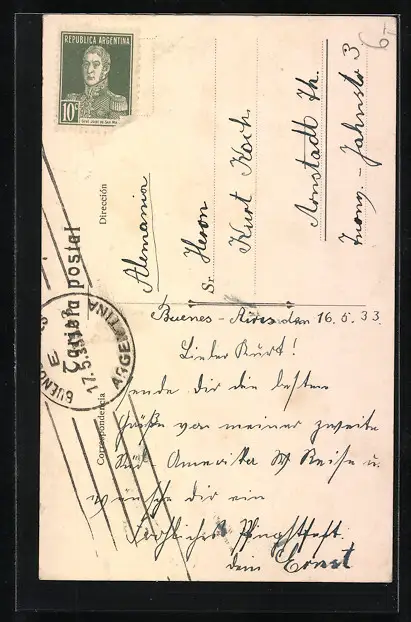 REPUBLICA ARGENTINA
10c
Tarjeta postal
Dirección
Alemania
Sr.
Herrn
Kurt Koch.
Arnstadt Th.
Jahnstr 3
6
BUENOS AIRES
E
17.5.33
ARGENTINA
Correspondencia
Buenos-Aires den 16.5.33.
Lieber Kurt!
sende dir die besten
Grüße von meiner zweite
Süd Amerika Reise u.
wünsche dir ein
Fröhliches Pfingstfest.
dein Ernst